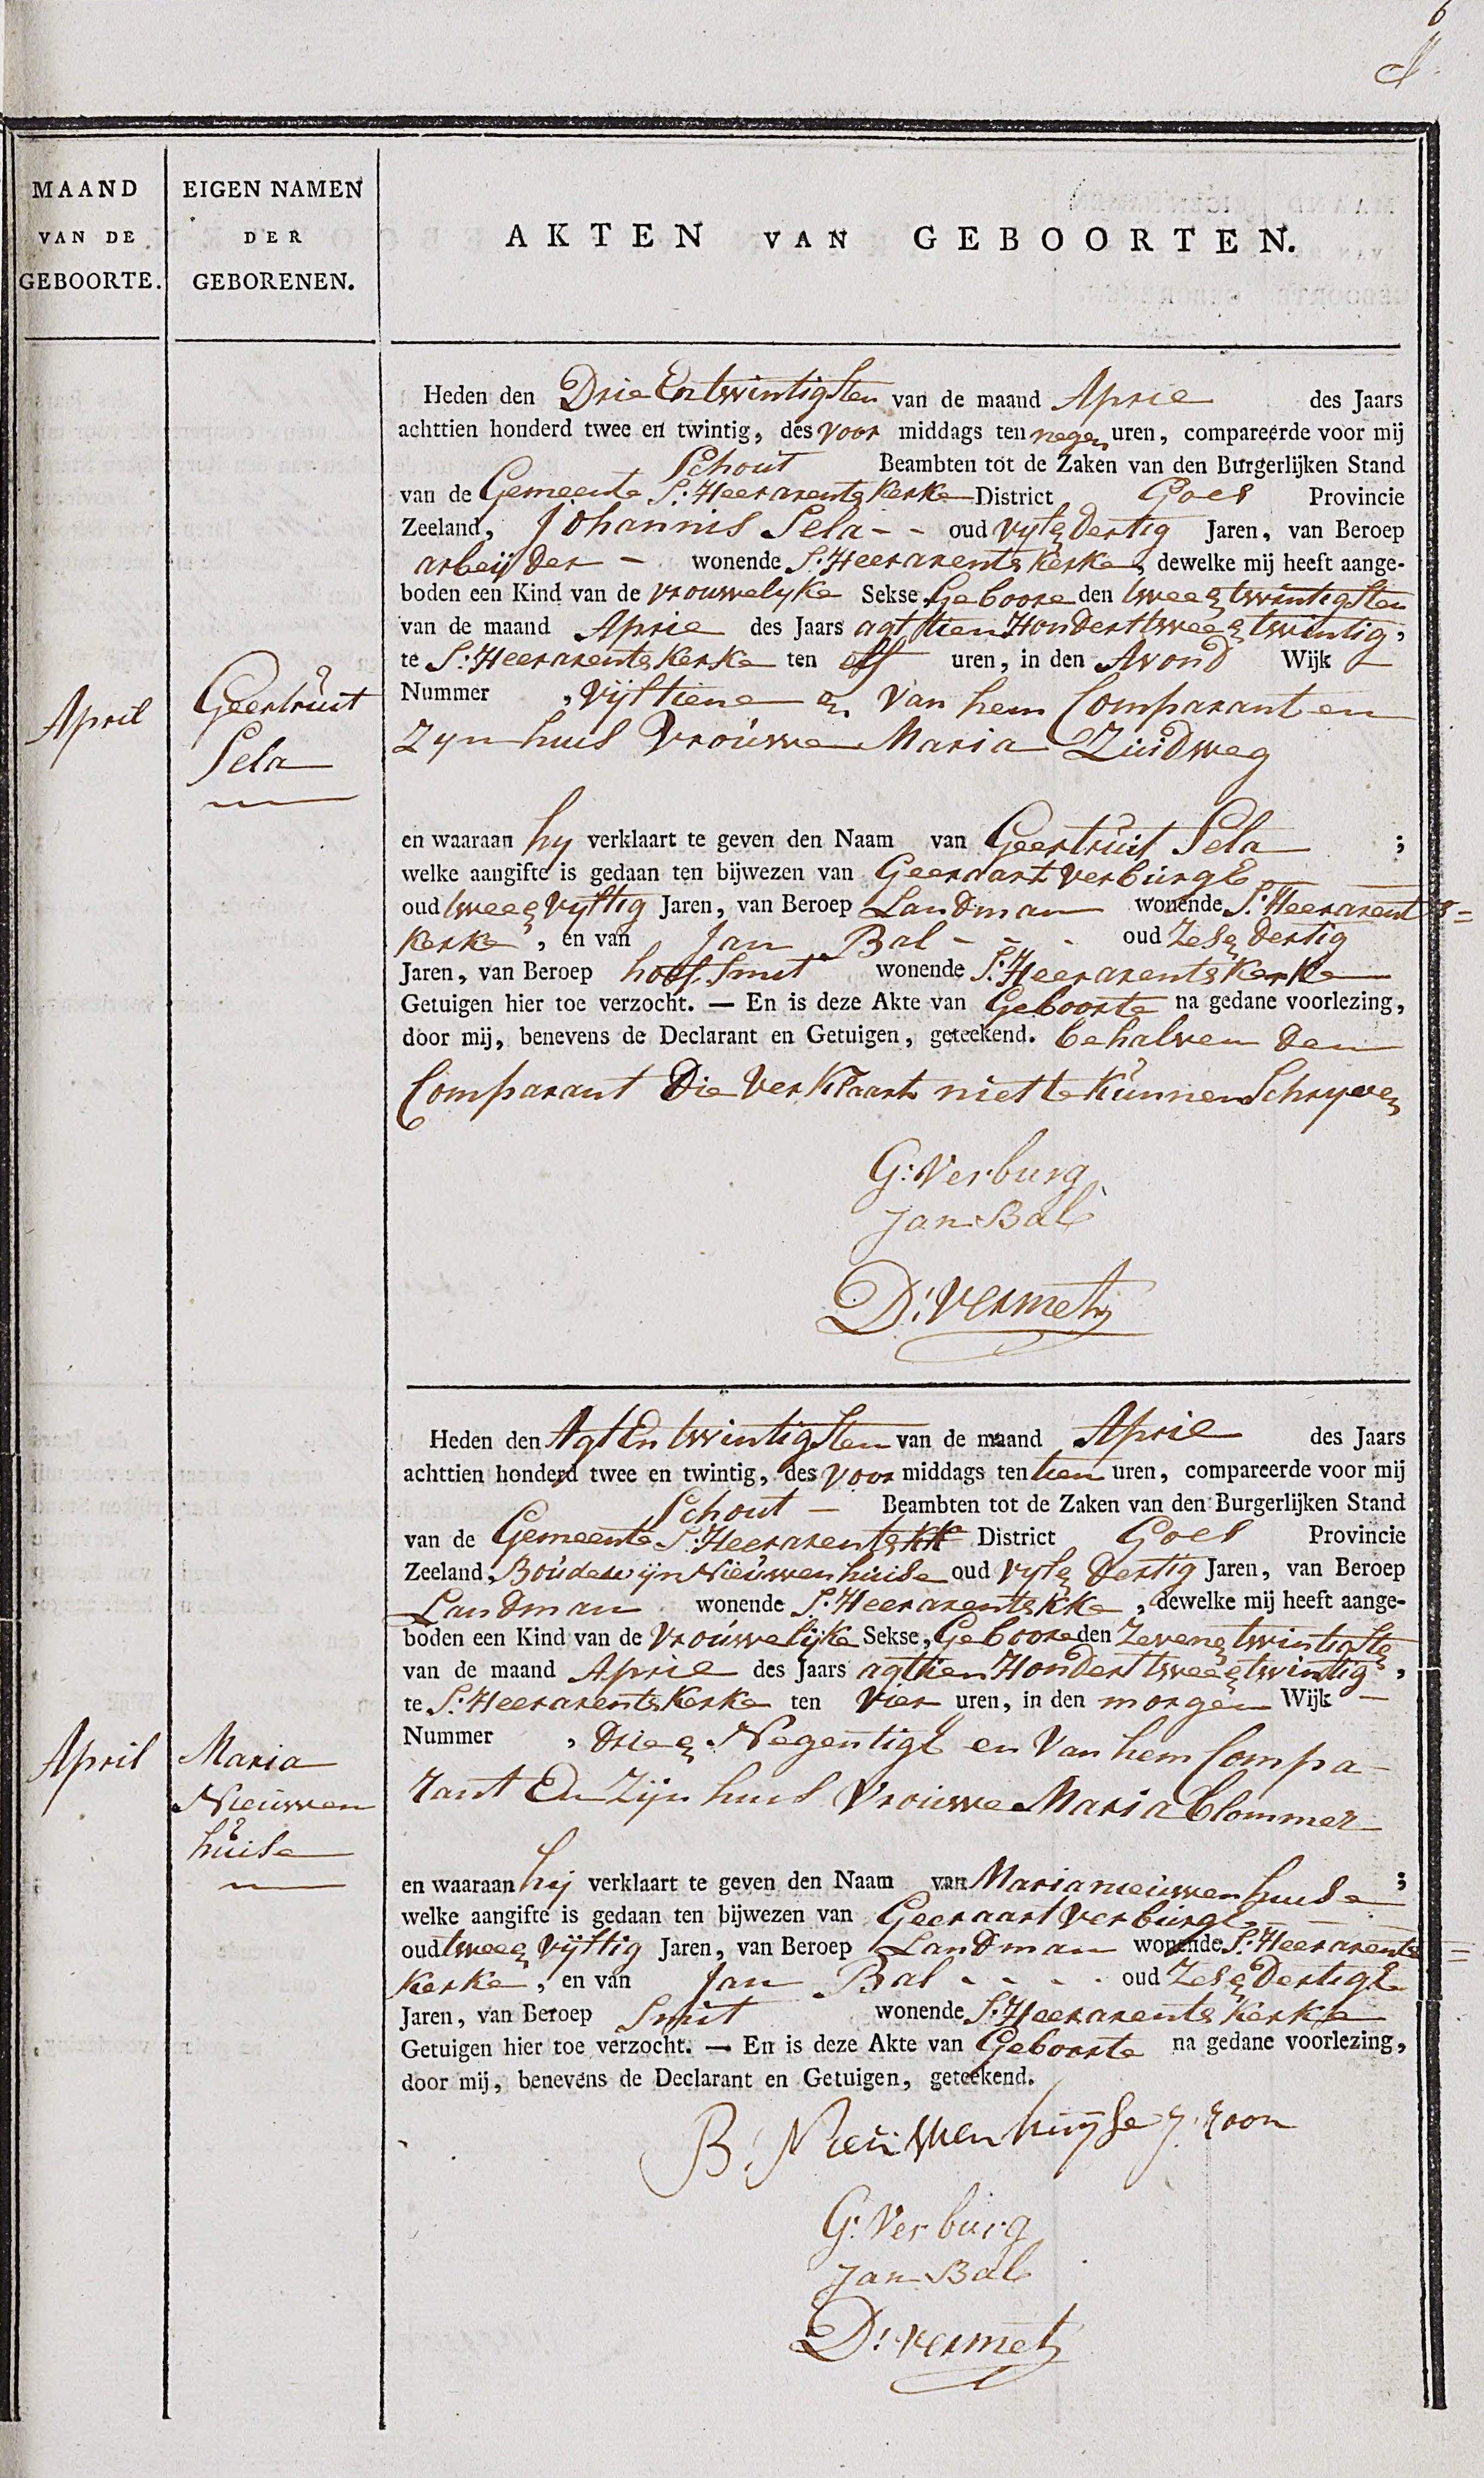 6
MAAND
VAN DE
GEBOORTE.
EIGEN NAMEN
DER
GEBORENEN.
AKTEN VAN GEBOORTEN.
April
Geertruit
Sela
Heden den Drie En twintigsten van de maand April des Jaars
achttien honderd twee en twintig, des voor middags ten negen uren, compareerde voor mij
Schout Beambten tot de Zaken van den Burgerlijken Stand
van de Gemeente S: Heerarents Kerke District Goes Provincie
Zeeland, Johannis Sela - - oud vyf en Dertig Jaren, van Beroep
arbeijder - wonende S: Heerarents Kerke, dewelke mij heeft aange-
boden een Kind van de vrouwelyke Sekse, Geboore den twee en twintigsten
van de maand April des Jaars agttien Hondert twee en twintig,
te S: Heerarents Kerke ten elf uren, in den Avond Wijk -
Nummer , Vijftiene en Van hem Comparant en
Zyn huis Vrouwe Maria Zuidweg
en waaraan hy verklaart te geven den Naam van Geertruit Sela ;
welke aangifte is gedaan ten bijwezen van Geeraart Verburgt
oud twee en vyftig Jaren, van Beroep Landman wonende S: Heerarents =
Kerke, en van Jan Bal - - - oud Zes en Dertig
Jaren, van Beroep hoef Smit wonende S: Heerarents Kerke
Getuigen hier toe verzocht. — En is deze Akte van Geboorte na gedane voorlezing,
door mij, benevens de Declarant en Getuigen, geteekend. behalven den
Comparant Die Verklaart niet te Kunnen Schryven
G: Verburg
Jan Bal
D: Vermet
April
Maria
Nieuwen
huise
Heden den Agt En twintigsten van de maand April des Jaars
achttien honderd twee en twintig, des Voor middags ten tien uren, compareerde voor mij
Schout - Beambten tot de Zaken van den Burgerlijken Stand
van de Gemeente S: Heerarents KKe District Goes Provincie
Zeeland, Boudewijn Nieuwenhuise oud vyf en Dertig Jaren, van Beroep
Landman wonende S: Heerarents KKe, dewelke mij heeft aange-
boden een Kind van de Vrouwelijke Sekse, Geboore den Zeven en twintigste
van de maand April des Jaars agttien Hondert twee en twintig,
te S: Heerarents Kerke ten Vier uren, in den morgen Wijk -
Nummer , Drie en Negentigt en Van hem Compa-
rant En Zijn huis Vrouwe Maria Clommer
en waaraan hij verklaart te geven den Naam van Maria nieuwenhuise ;
welke aangifte is gedaan ten bijwezen van Geeraart Verburgt
oud twee en Vyftig Jaren, van Beroep Landman wonende S: Heerarents =
Kerke, en van Jan Bal - - - - oud Zes en Dertigt
Jaren, van Beroep Smit wonende S: Heerarents Kerke
Getuigen hier toe verzocht. — En is deze Akte van Geboorte na gedane voorlezing,
door mij, benevens de Declarant en Getuigen, geteekend.
B: Nieuwenhuyse J: zoon
G: Verburg
Jan Bal
D: Vermet